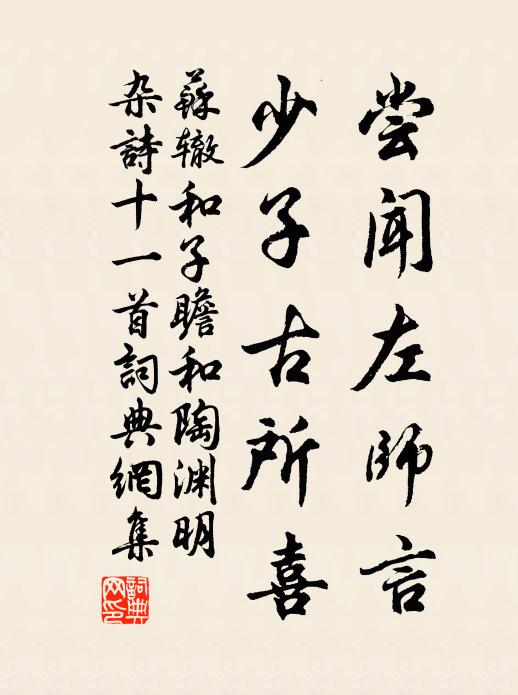 尝闻左师言
少子古所喜
蘇辙和子瞻和陶渊明
杂詩十一首詞典網集
詞典網印